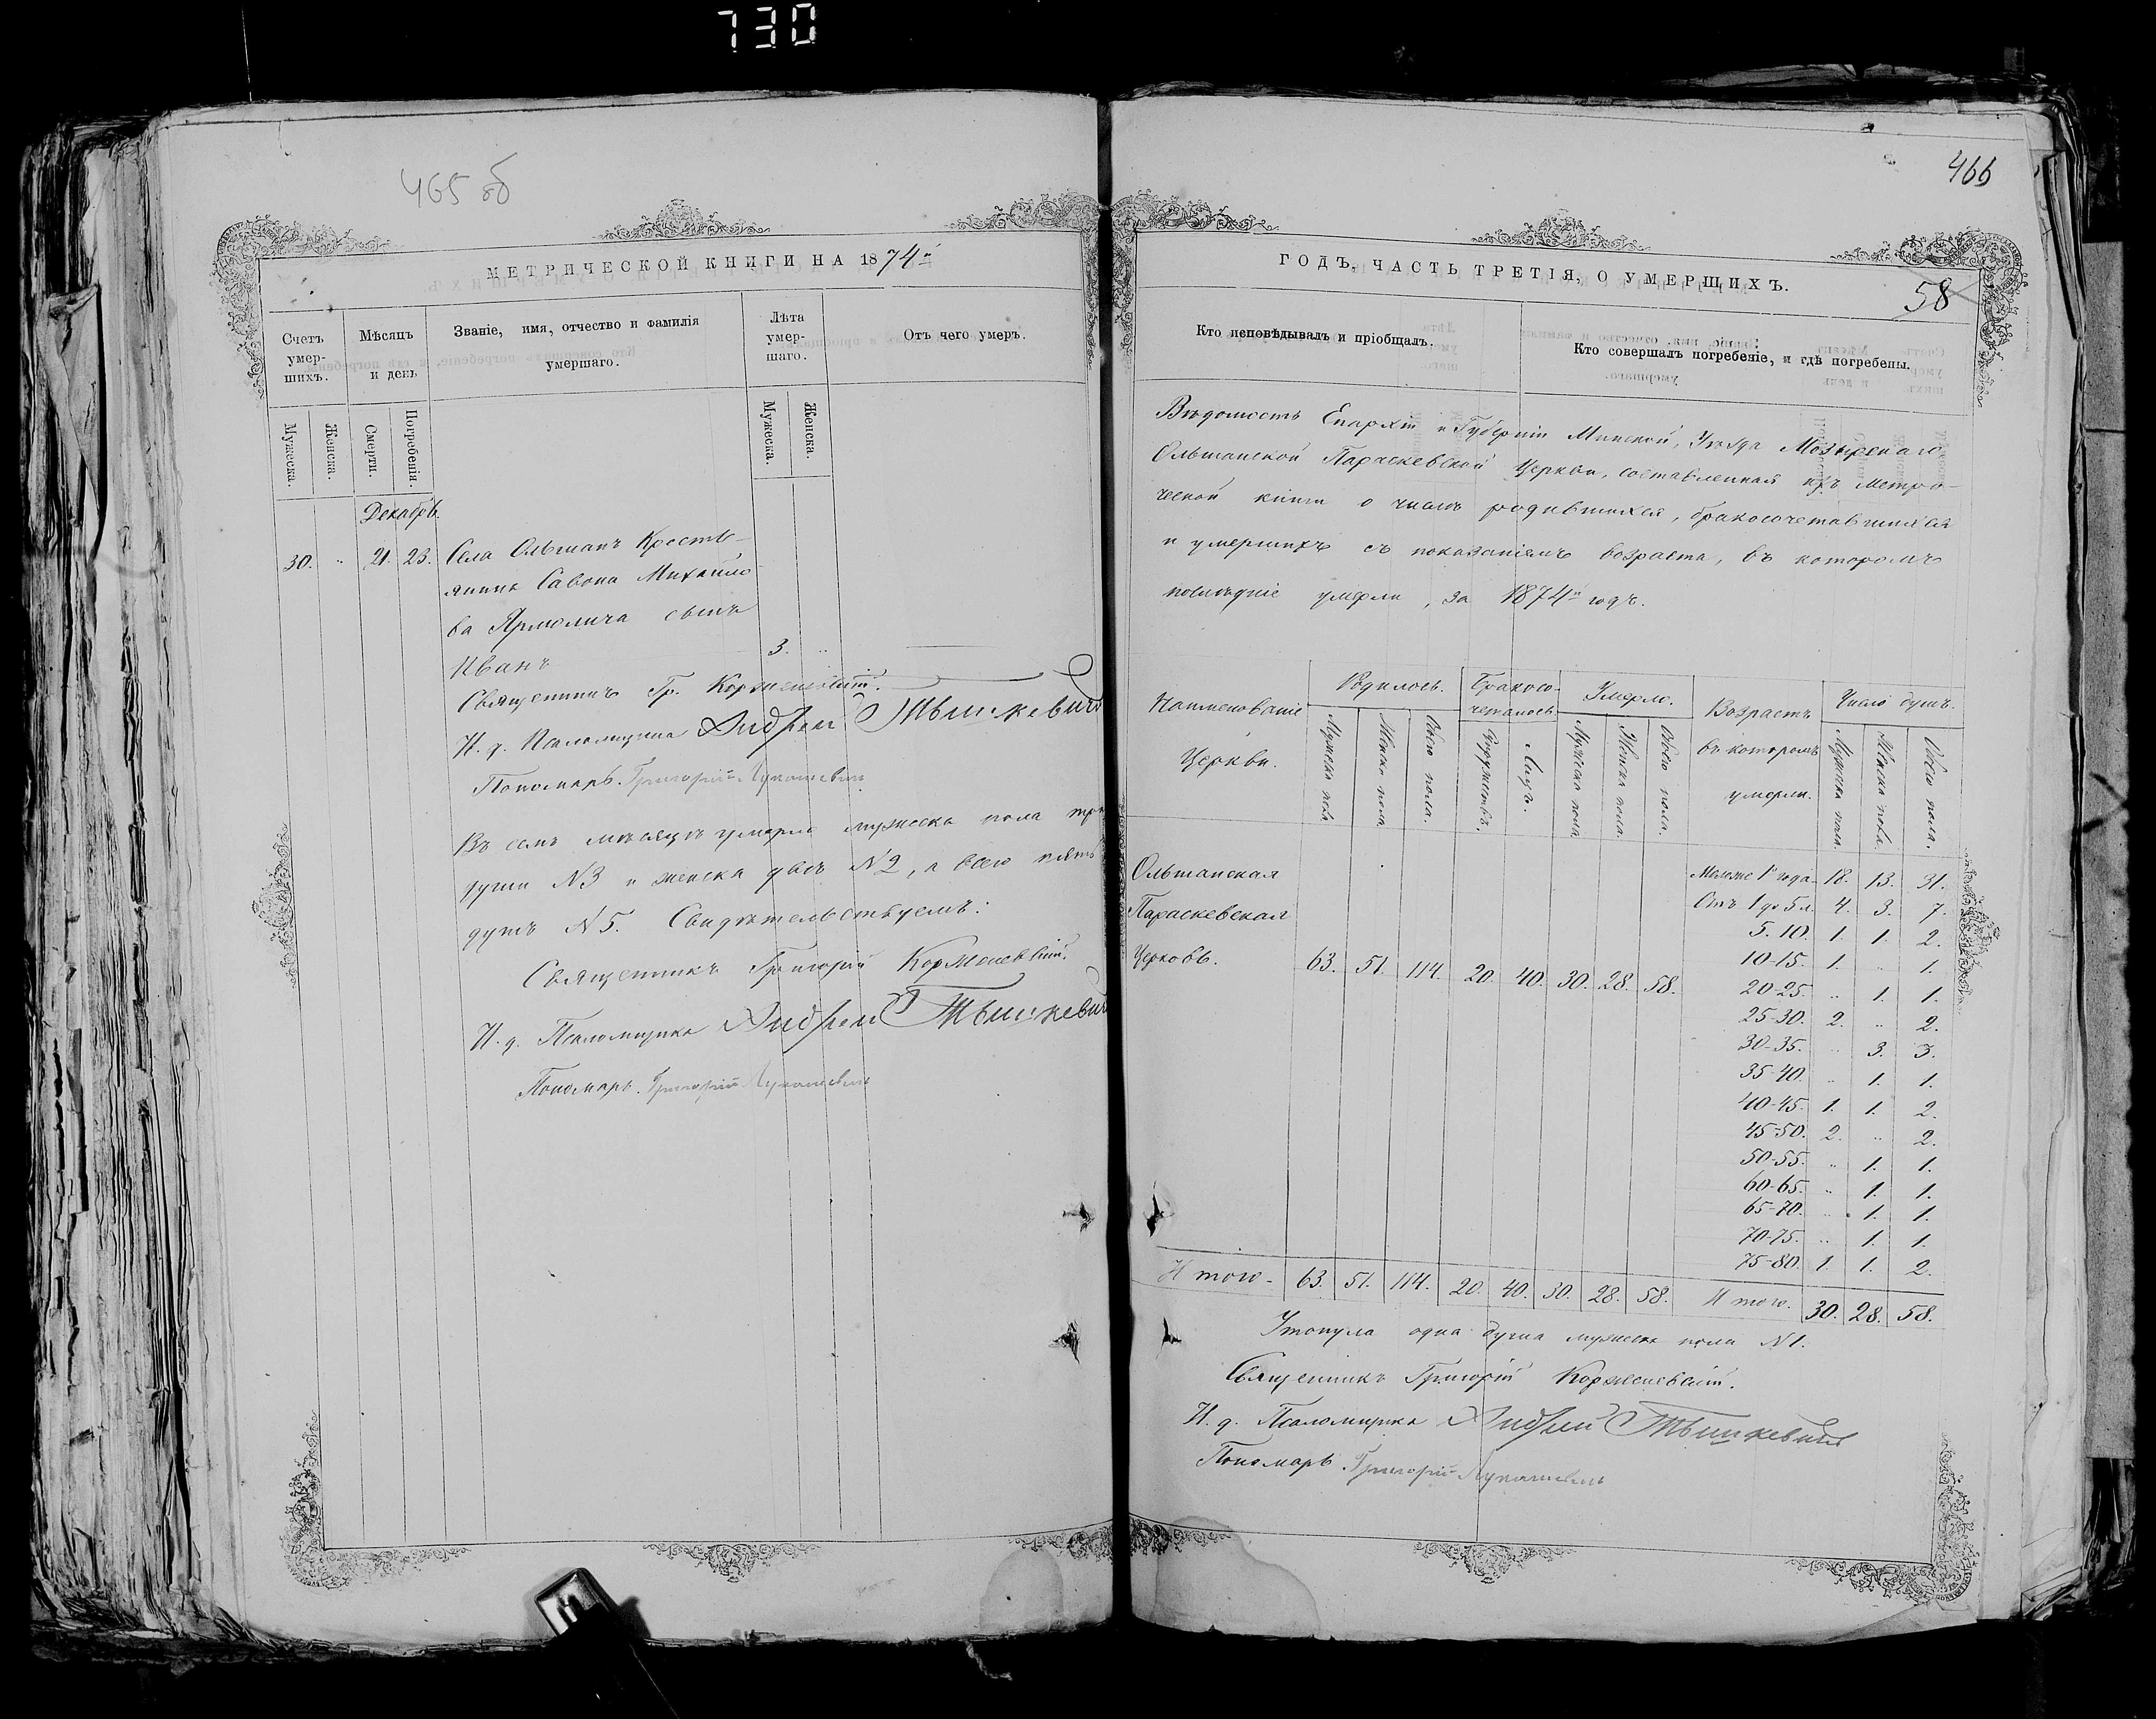 730
465 об
МЕТРИЧЕСКОЙ КНИГИ НА 1874й
Счетъ умершихъ.
Мѣсяцъ и день
Званіе, имя, отчество и фамилія умершаго.
Лѣта умершаго.
Отъ чего умеръ.
Мужеска.
Женска.
Смерти.
Погребенія.
Мужеска.
Женска.
Декабрь.
30. " 21. 23. Села Ольшанъ Кресть-
янина Савона Михайло
ва Ярмолича сынъ
Иванъ 3. "
Священникъ Гр. Корженевскій.
И. д. Псаломщика Андрей Тышкевичъ
Пономарь Григорій Лукашевичъ
Въ семъ мѣсяцѣ умерло мужеска пола три
души №3 и женска двѣ №2, а всего пять
душъ №5. Свидѣтельствуемъ:
Священникъ Григорій Корженевскій.
И. д. Псаломщика Андрей Тышкевичъ
Пономарь. Григорій Лукашевичъ
466
ГОДЪ, ЧАСТЬ ТРЕТІЯ, О УМЕРШИХЪ.
58
Кто исповѣдывалъ и пріобщалъ.
Кто совершалъ погребеніе, и гдѣ погребены.
Вѣдомость Епархіи и Губерніи Минской, Уѣзда Мозырскаго
Ольшанской Параскевской Церкви, составленная изъ метри-
ческой книги о числѣ родившихся, бракосочетавшихся
и умершихъ съ показаніемъ возраста, въ которомъ
послѣдніе умерли, за 1874й годъ.
Наименованіе Церкви.
Родилось.
Бракосо-
четалось
Умерло.
Возрастъ въ которомъ умерли.
Число душъ.
Мужеска пола
Женска пола.
Обоего пола.
Супружествъ.
Лицъ.
Мужеска пола
Женска пола.
Обоего пола.
Мужеска пола.
Женска пола.
Обоего пола.
Ольшанская
Параскевская
Церковь. 63. 51. 114. 20. 40. 30. 28. 58.
Моложе 1го года 18. 13. 31.
Отъ 1 до 5 л. 4. 3. 7.
5. 10. 1. 1. 2.
10-15. 1. " 1.
20-25. " 1. 1.
25-30. 2. " 2.
30-35. " 3. 3.
35-40. " 1. 1.
40-45. 1. 1. 2.
45-50. 2. " 2.
50-55. " 1. 1.
60-65. " 1. 1.
65-70. " 1. 1.
70-75. " 1. 1.
75-80. 1. 1. 2.
Итого - 63. 51. 114. 20. 40. 30. 28. 58. Итого. 30. 28. 58.
Утонула одна душа мужеска пола №1.
Священникъ Григорій Корженевскій.
И. д. Псаломщика Андрей Тышкевичъ
Пономарь. Григорій Лукашевичъ